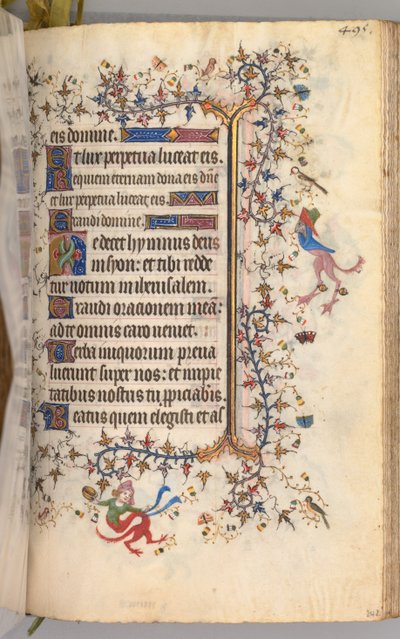 495.
eis domine.
Et lux perpetua luceat eis.
Requiem eternam dona eis dñe
et lux perpetua luceat eis.
Exaudi domine.
Te decet hymnus deus
in syon: et tibi redde
tur votum in iherusalem.
Exaudi orationem meã:
ad te omnis caro veniet.
Verba iniquorum preua
luerunt super nos: et impie
tatibus nostris tu ppiciabis.
Beatus quem elegisti et as